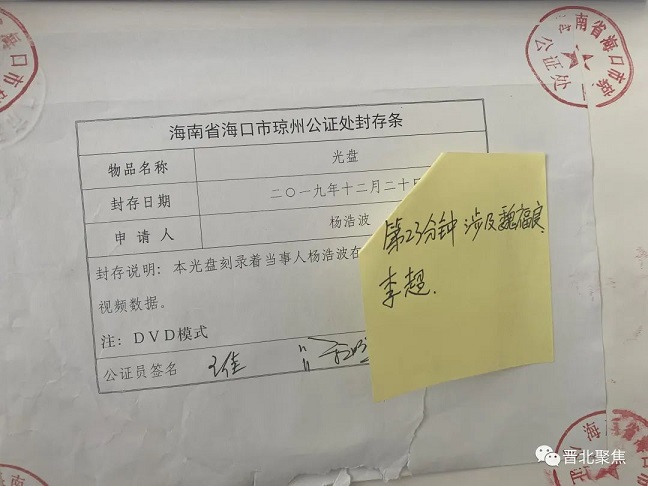 海南省海口市琼州公证处封存条
物品名称 光盘
封存日期 二〇一九年十二月二十
申请人 杨浩波
封存说明：本光盘刻录着当事人杨浩波在
视频数据。
注：DVD模式
公证员签名
第23分钟涉及魏福良.
李超.
南省海口市琼
公证处
海口市
晋北聚焦